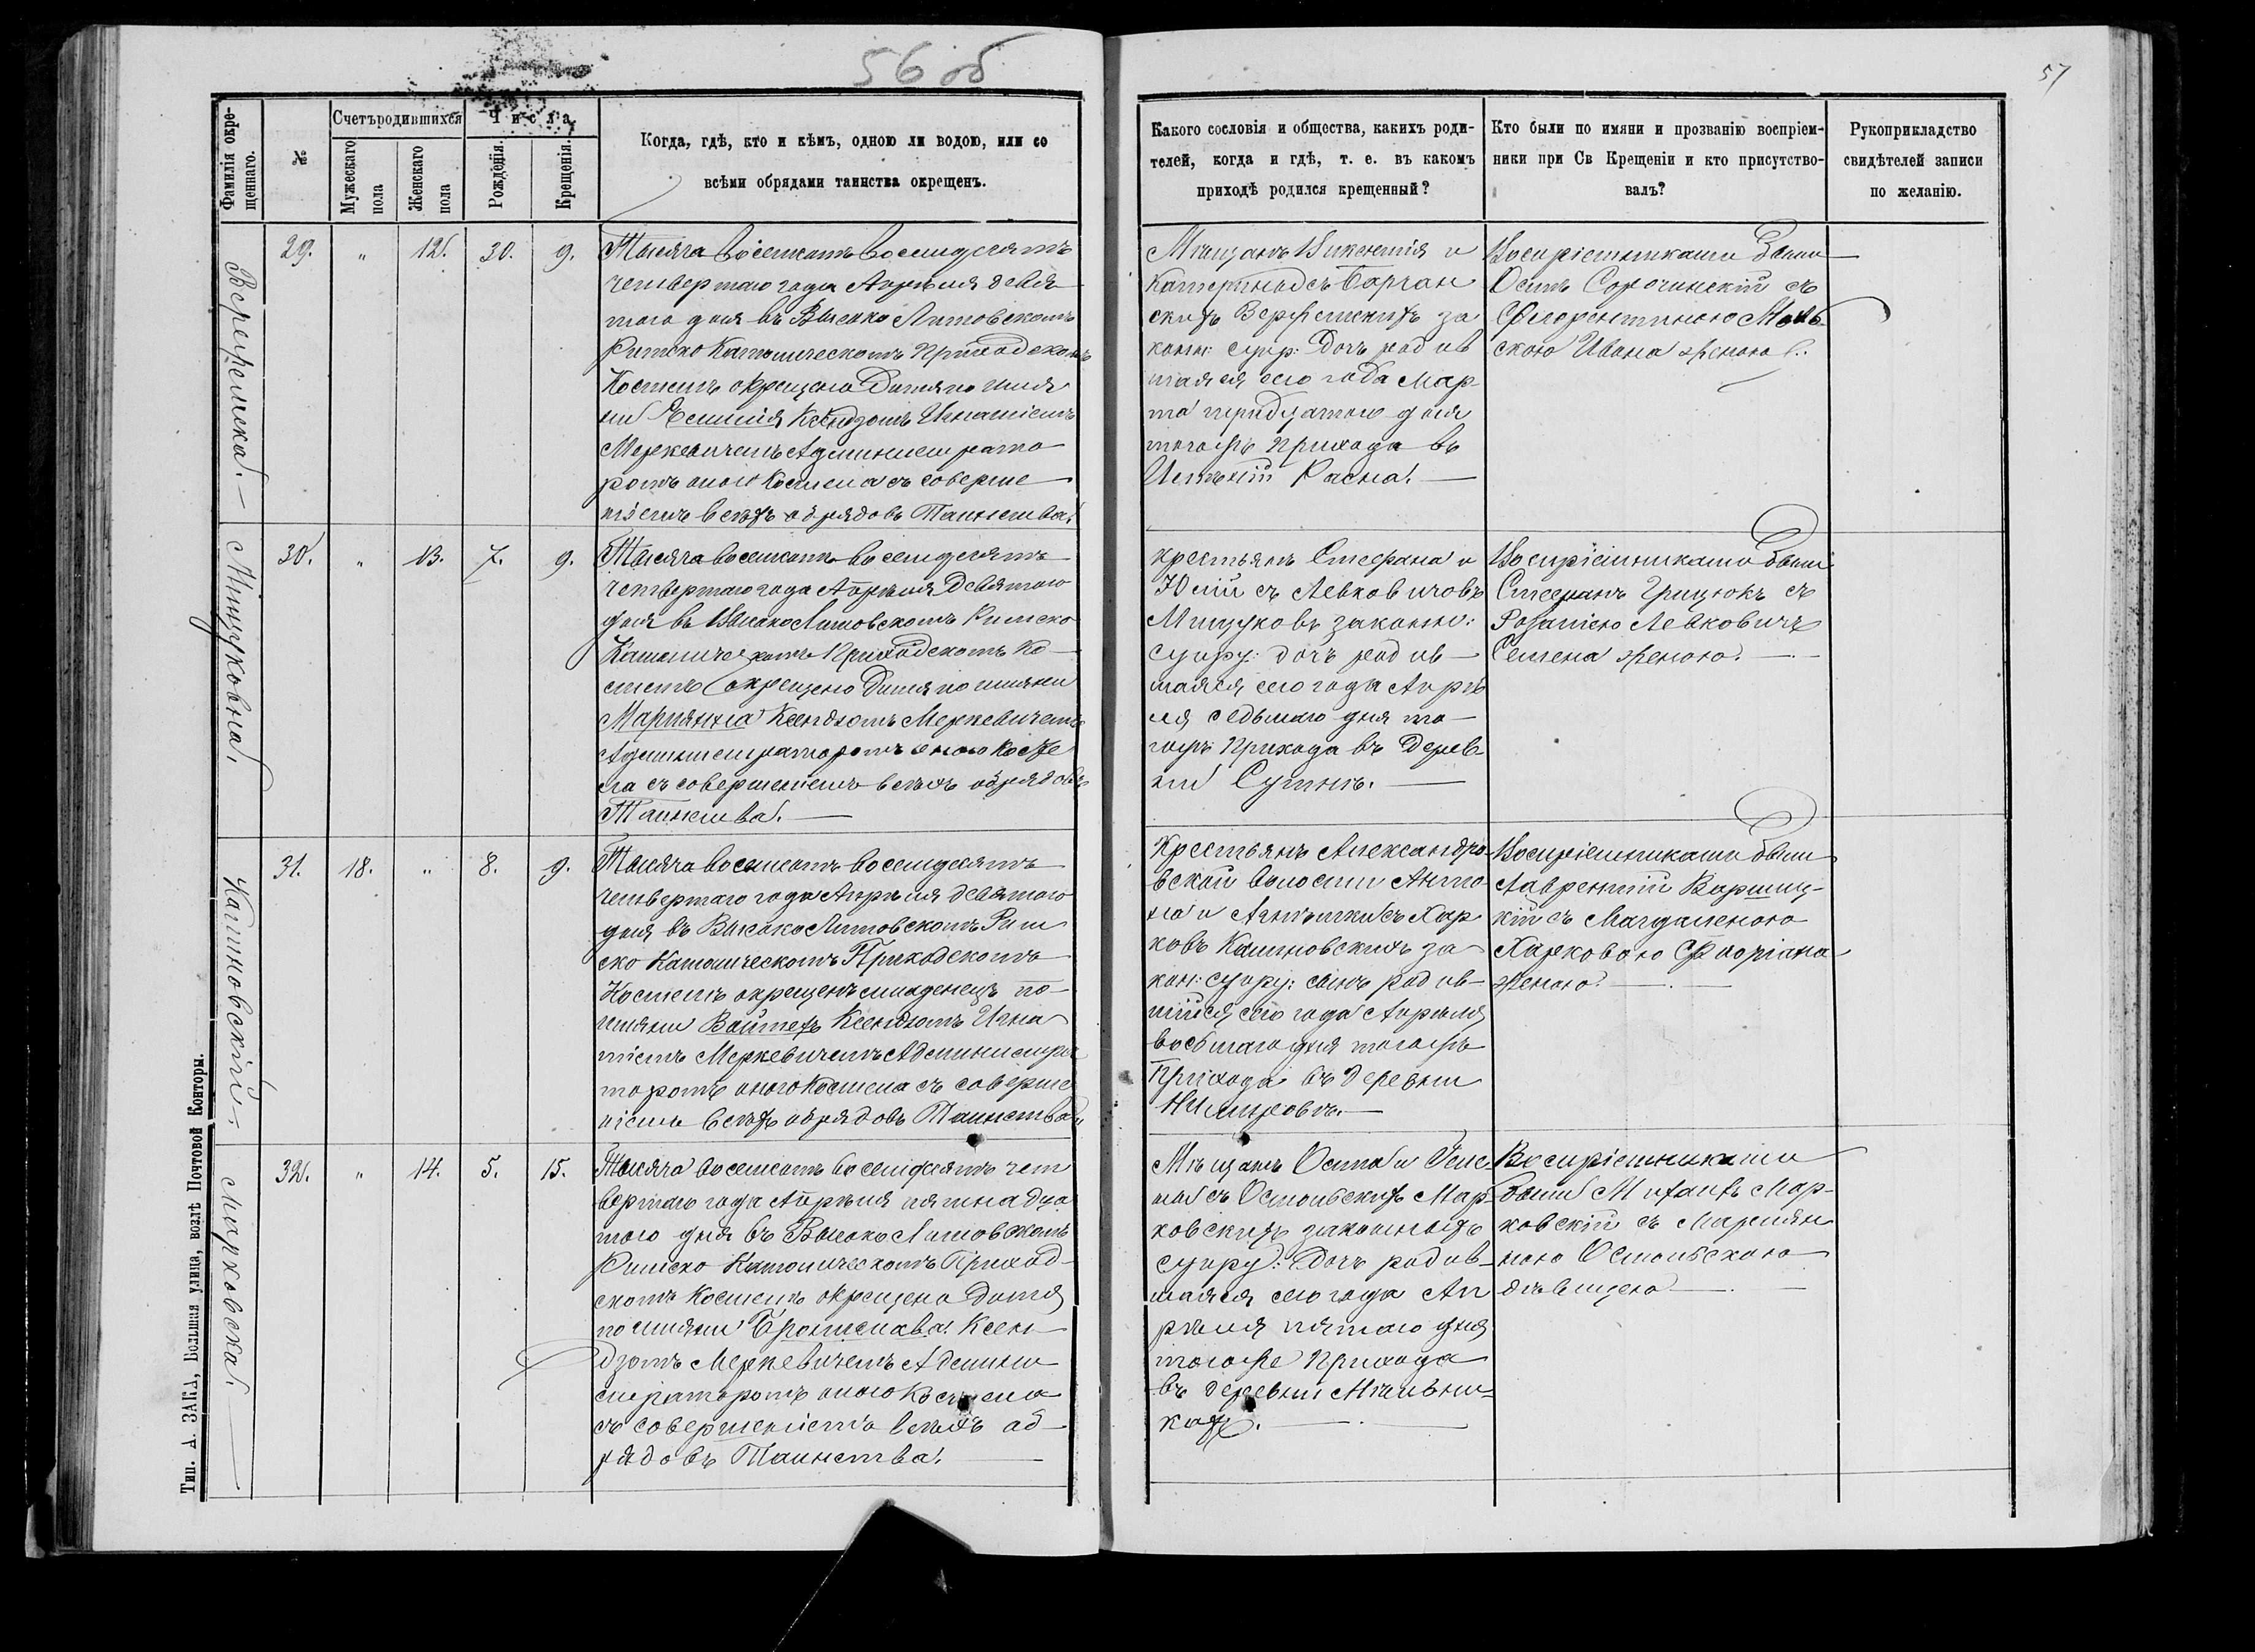 56 об
57
Фамилія окрещеннаго.
№
Счетъ родившихся
Мужескаго пола
Женскаго пола
Числа
Рожденія.
Крещенія.
Когда, гдѣ, кто и кѣмъ, одною ли водою, или со
всѣми обрядами таинства окрещенъ.
Какого сословія и общества, какихъ роди-
телей, когда и гдѣ, т. е. въ какомъ
приходѣ родился крещенный?
Кто были по имяни и прозванію воспріем-
ники при Св Крещеніи и кто присутство-
валъ?
Рукоприкладство
свидѣтелей записи
по желанію.
29. " 12. 30. 9.
Тысяча восемсотъ восемдесятъ
четвертаго года Апрѣля девя
таго дня въ Высоко Литовскомъ
Римско Католическомъ Приходскомъ
Костелѣ окрещено Дитя по имя
ни Ксендзомъ Игнатіемъ
Меркевичемъ Администрато
ромъ оного Костела съ соверше
ніемъ всѣхъ обрядовъ Таинства.
Мѣщанъ Викентія и
за
конн: супр: Дочь родив
шаяся сего года Мар
та тридцатого дня
тогожъ Прихода въ
Расна.
Воспріемниками были
Осипъ Сорочинскій съ
Флорентиною
скою Ивана женою.
Мищуковна.
30. " 13. 7. 9.
Тысяча восемсотъ восемдесятъ
четвертаго года Апрѣля Девятого
дня въ Высоко Литовскомъ Римско
Католическомъ Приходскомъ Ко
стелѣ окрещено Дитя по имяни
Марианна Ксендзомъ Меркевичемъ
Администраторомъ оного Косте
ла съ совершеніемъ всѣхъ обрядовъ
Таинства.
крестьянъ Стефана и
Юліи съ Левковичовъ
Мищуковъ законн:
супру: дочь родив
шаяся сего года Апрѣ
ля седьмаго дня то
гожъ Прихода въ Дерев
ни
Воспріемниками были
Стефанъ Грицюкъ съ
Розаліею Левковичъ
Семена женою.
Калиновскій.
31. 18. " 8. 9.
Тысяча восемсотъ восемдесятъ
четвертаго года Апрѣля девятого
дня въ Высоко Литовскомъ Рим
ско Католическомъ Приходскомъ
Костелѣ окрещенъ младенецъ по
имяни Войтехъ Ксендзомъ Игна
тіемъ Меркевичемъ Администра
торомъ оного Костела съ соверше
ніемъ всѣхъ обрядовъ Таинства.
Крестьянъ Александро
вской волости Анто
на и съ Хар
ковъ Калиновскихъ за
кон: супру: сынъ родив
шійся сего года Апрѣля
восьмаго дня тогожъ
Прихода въ деревни
Воспріемниками были
Лаврентій
кій съ Магдаленою
Харковою Флоріана
женою.
Марковска.
32. " 14. 5. 15.
Тысяча восемсотъ восемдесятъ чет
вертаго года Апрѣля пятнадца
таго дня въ Высоко Литовскомъ
Римско Католическомъ Приход
скомъ Костелѣ окрещено Дитя
по имяни Брониславa Ксен
дзомъ Меркевичемъ Админи
страторомъ оного Костела
съ совершеніемъ всѣхъ об
рядовъ Таинства.
Мѣщанъ Осипа и
съ Мар
ковскихъ законныхъ
супру: Дочь родив
шаяся сего года Ап
рѣля пятаго дня
тогоже Прихода
въ деревни
Воспріемниками
были Михаилъ Мар
ковскій съ Мариян
ною
дѣвицею
Тип. А. ЗАКА, Большая улица, возлѣ Почтовой Конторы.